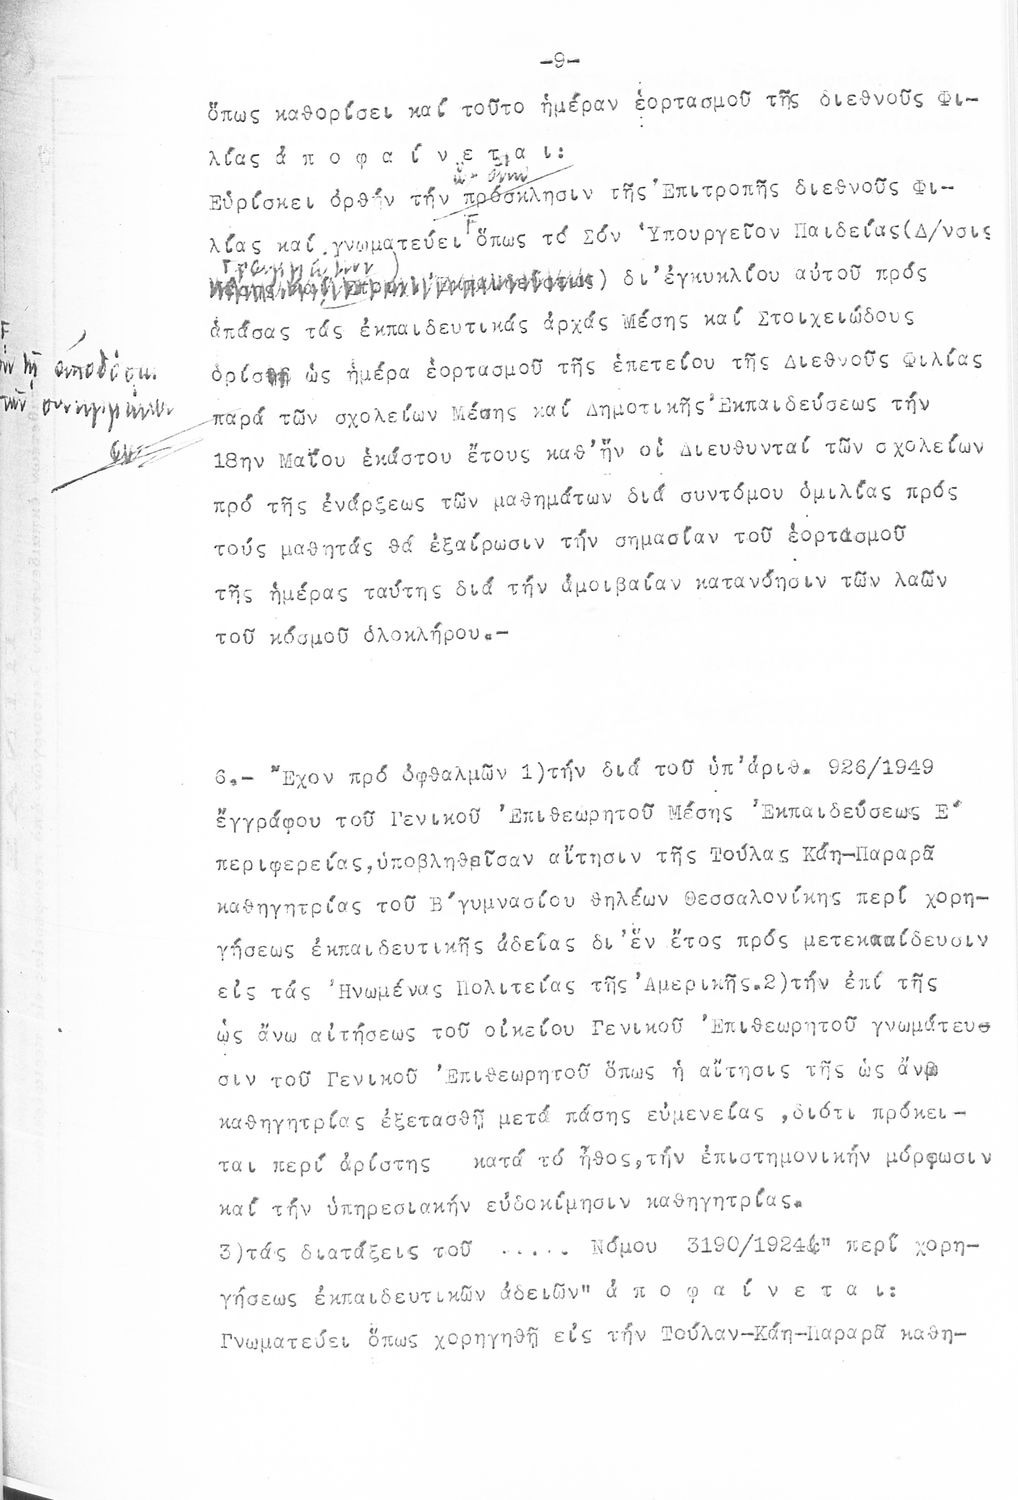 -9-
ὅπως καθορίσει καί τοῦτο ἡμέραν ἑορτασμοῦ τῆς διεθνοῦς Φι-
λίας ἀ π ο φ α ί ν ε τ α ι:
Εὑρίσκει ὀρθήν τήν πρόσκλησιν τῆς Ἐπιτροπῆς διεθνοῦς Φι-
λίας καί γνωματεύει ὅπως τό Σόν Ὑπουργεῖον Παιδείας(Δ/νσις
Γραμμάτων
) δι' ἐγκυκλίου αὐτοῦ πρός
ἁπάσας τάς ἐκπαιδευτικάς ἀρχάς Μέσης καί Στοιχειώδους
ὁρίσῃ ὡς ἡμέρα ἑορτασμοῦ τῆς ἐπετείου τῆς Διεθνοῦς Φιλίας
παρά τῶν σχολείων Μέσης καί Δημοτικῆς Ἐκπαιδεύσεως τήν
18ην Μαΐου ἑκάστου ἔτους καθ'ἥν οἱ Διευθυνταί τῶν σχολείων
πρό τῆς ἐνάρξεως τῶν μαθημάτων διά συντόμου ὁμιλίας πρός
τούς μαθητάς θά ἐξαίρωσιν τήν σημασίαν τοῦ ἑορτασμοῦ
τῆς ἡμέρας ταύτης διά τήν ἀμοιβαίαν κατανόησιν τῶν λαῶν
τοῦ κόσμοῦ ὁλοκλήρου.-
6.- Ἔχον πρό ὀφθαλμῶν 1)τήν διά τοῦ ὑπ'ἀριθ. 926/1949
ἔγγράφου τοῦ Γενικοῦ Ἐπιθεωρητοῦ Μέσης Ἐκπαιδεύσεως Ε'
περιφερείας,ὑποβληθεῖσαν αἴτησιν τῆς Τούλας Κάη-Παραρᾶ
καθηγητρίας τοῦ Β'γυμνασίου θηλέων Θεσσαλονίκης περί χορη-
γήσεως ἐκπαιδευτικῆς ἀδείας δι'ἕν ἔτος πρός μετεκπαίδευσιν
εἰς τάς Ἡνωμένας Πολιτείας τῆς Ἀμερικῆς.2)τήν ἐπί τῆς
ὡς ἄνω αἰτήσεως τοῦ οἰκείου Γενικοῦ Ἐπιθεωρητοῦ γνωμάτευ-
σιν τοῦ Γενικοῦ Ἐπιθεωρητοῦ ὅπως ἡ αἴτησις τῆς ὡς ἄνω
καθηγητρίας ἐξετασθῇ μετά πάσης εὐμενείας ,διότι πρόκει-
ται περί ἀρίστης κατά τό ἦθος,τήν ἐπιστημονικήν μόρφωσιν
καί τήν ὑπηρεσιακήν εὐδοκίμησιν καθηγητρίας.
3)τάς διατάξεις τοῦ ..... Νόμου 3190/1924 " περί χορη-
γήσεως ἐκπαιδευτικῶν ἀδειῶν" ἀ π ο φ α ί ν ε τ α ι:
Γνωματεύει ὅπως χορηγηθῇ εἰς τήν Τούλαν-Κάη-Παραρᾶ καθη-